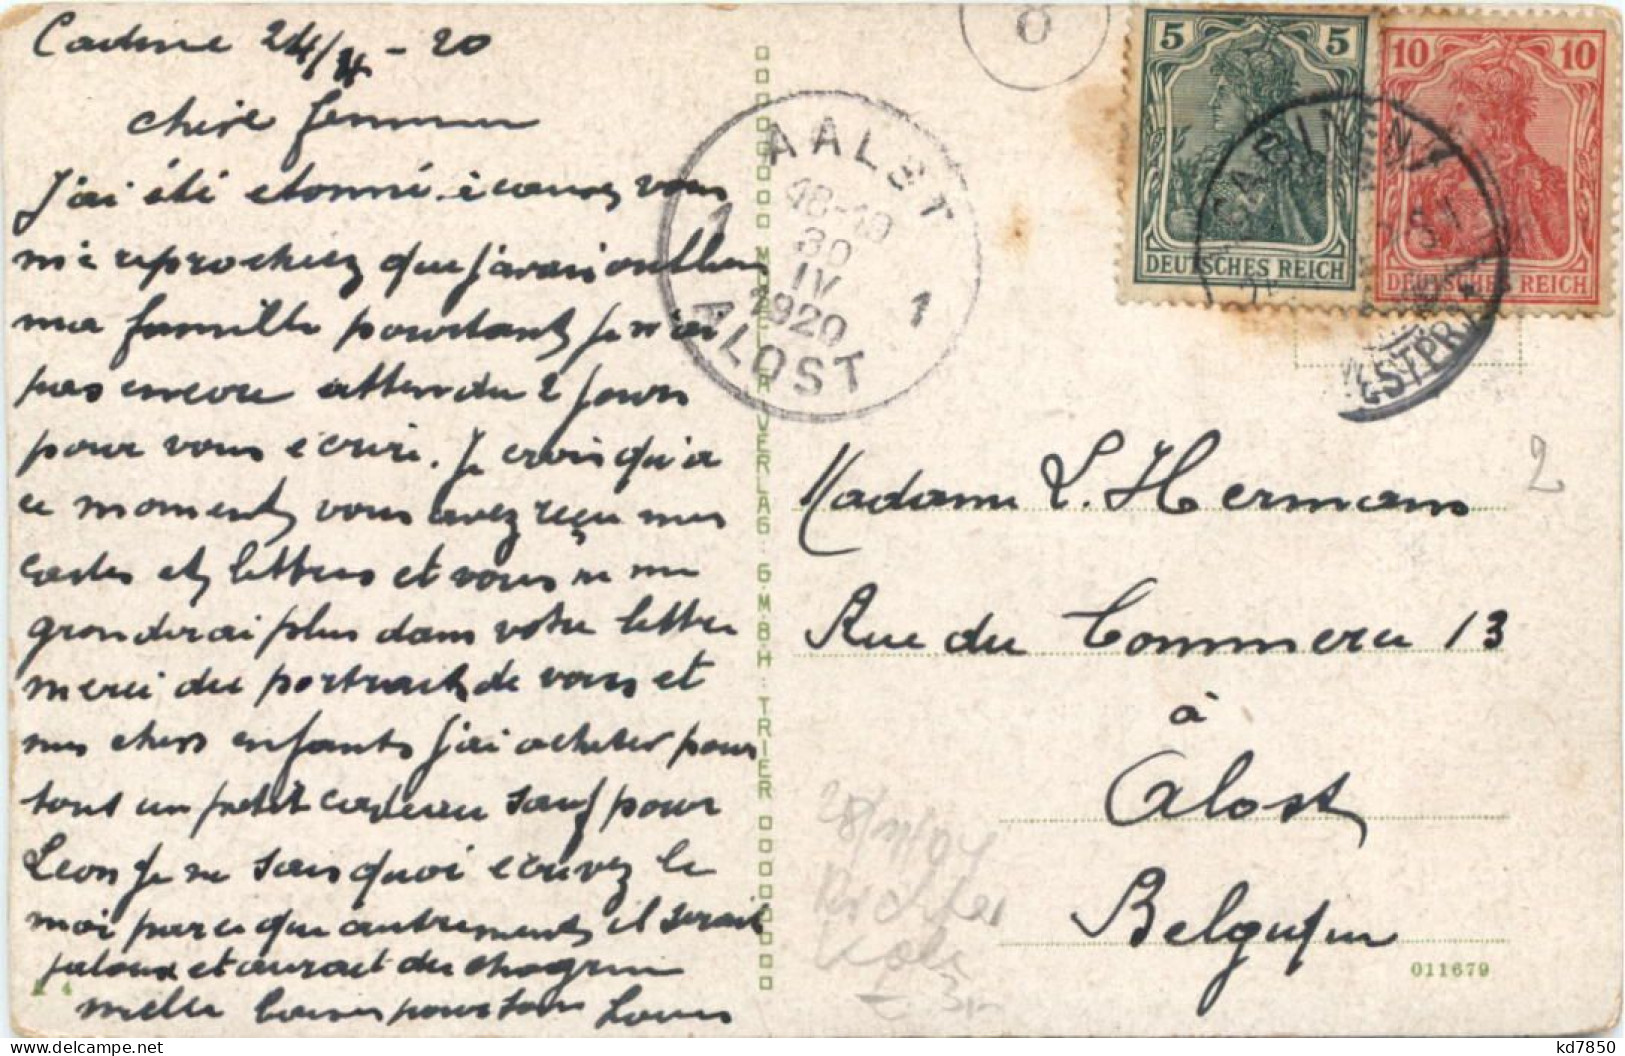 Cadine 24/4 - 20
chère femme
J'ai été etonné à courez vous
me reprochiez que j'avais oublier
ma famille pourtant je n'ai
pas encore attendu 2 jours
pour vous écrire. Je crois qu'a
ce moment vous avez reçu mes
cartes et lettres et vous ne me
gronderai plus dans votre lettre
merci du portrait de vous et
mes chers enfants j'ai acheter pour
tout un petit cadeau sauf pour
Leon je ne sais quoi ecrivez le
moi parce que autrement il serait
jaloux et aurait du chagrin
mille baisers pour tous Louis
24
MOSELLA VERLAG G.M.B.H. TRIER
AALST
18-19
30
IV
1920
1 1
ALOST
8
5 5
DEUTSCHES REICH
10 10
DEUTSCHES REICH
WESTPR.
2
Madame L. Hermans
Rue du Commerce 13
à
Alost
Belgique
011679
Richter
kd7850